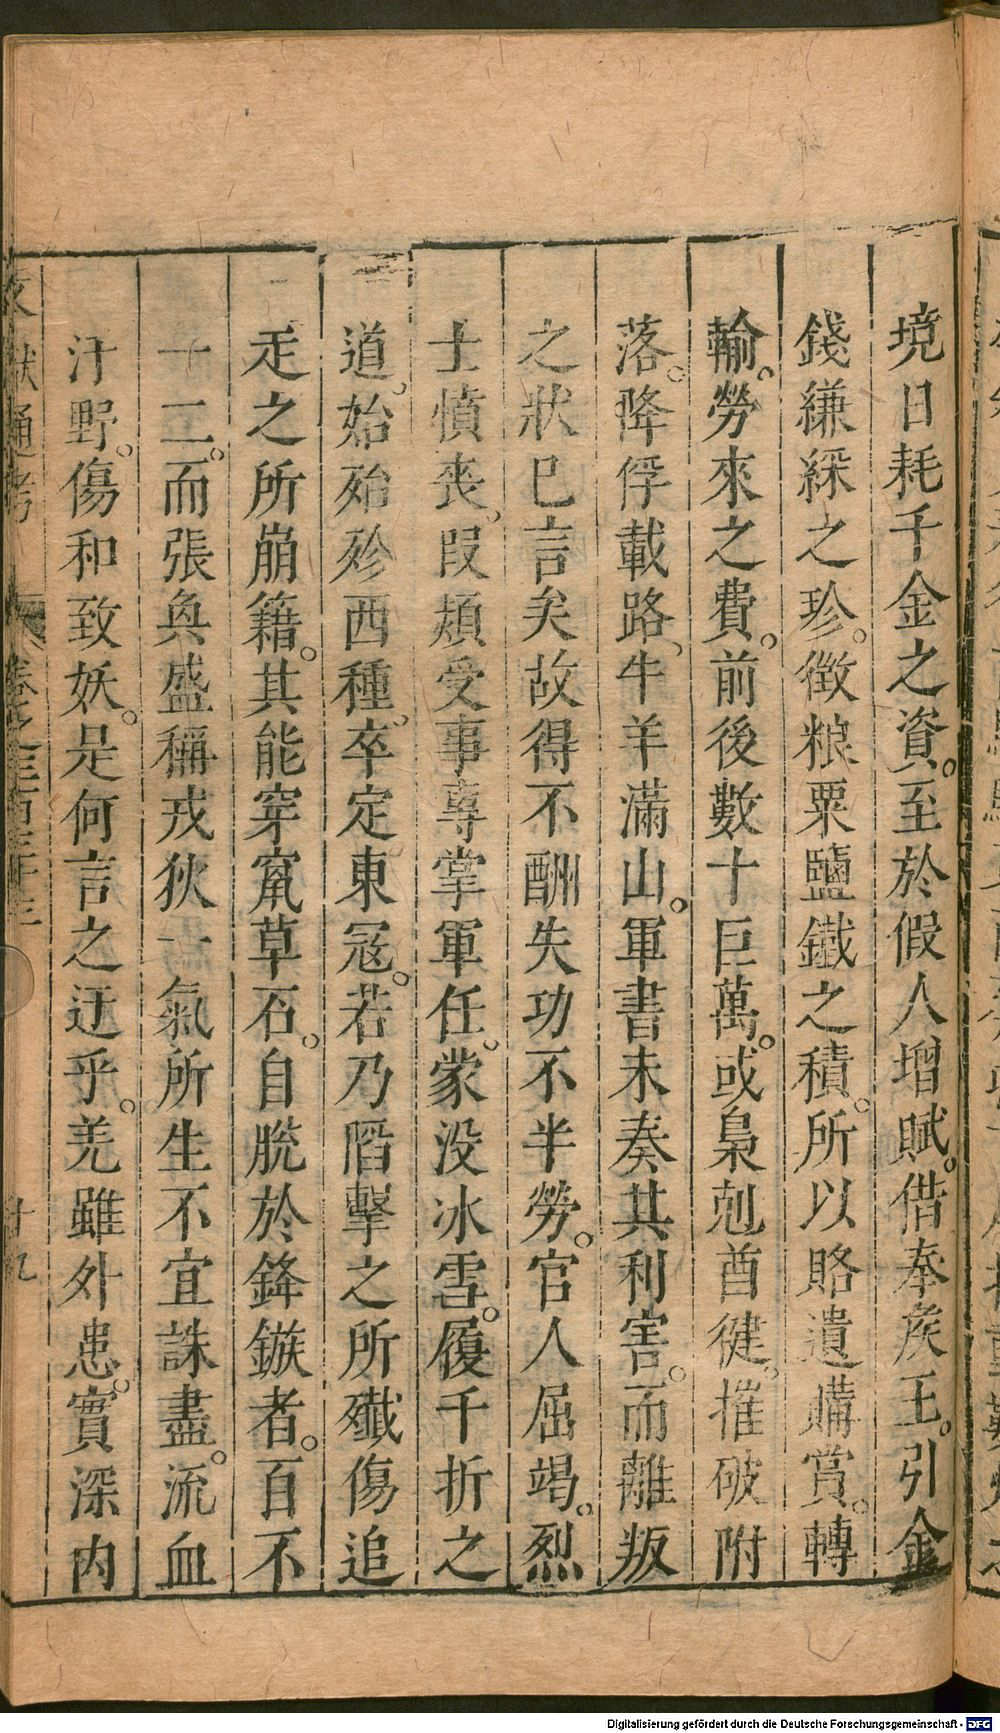 境日耗千金之資。至於假人增賦。借奉矦王。引金
錢縑綵之珍。徴粮粟鹽鐵之積。所以賂遺購賞。轉
輸。勞來之費。前後數十巨萬。或梟剋酋健。摧破附
落。降俘載路、牛羊滿山。軍書未奏其利害。而離叛
之狀已言矣故得不酬失功不半勞。官人屈竭。烈
士憤喪、叚熲受事專掌軍任。蒙没冰雪。履千折之
道。始殄西種。卒定東冦。若乃䧟擊之所殲傷追
走之所崩籍。其能穿竄草石。自脱於鋒鏃者。百不
一二。而張奐盛稱戎狄一氣所生不宜誅盡。流血
汙野。傷和致妖。是何言之迂乎。羌雖外患。實深内
文獻通考 卷之三百三十三 十九
Digitalisierung gefördert durch die Deutsche Forschungsgemeinschaft - DFG